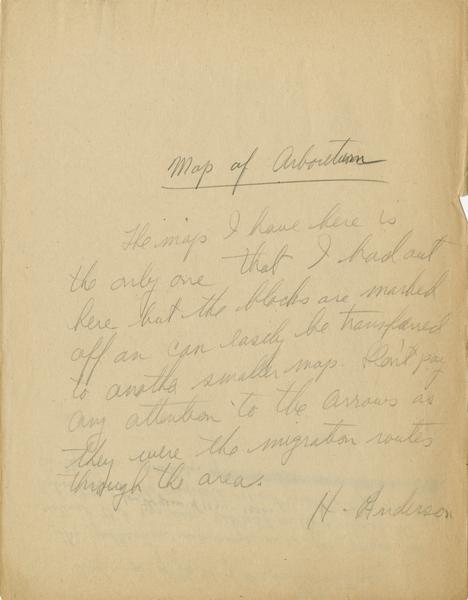 Map of Arboretum
The map I have here is
the only one that I had out
here but the blocks are marked
off an can easily be transferred
to another smaller map. Don't pay
any attention to the arrows as
they were the migration routes
through the area.
H. Anderson